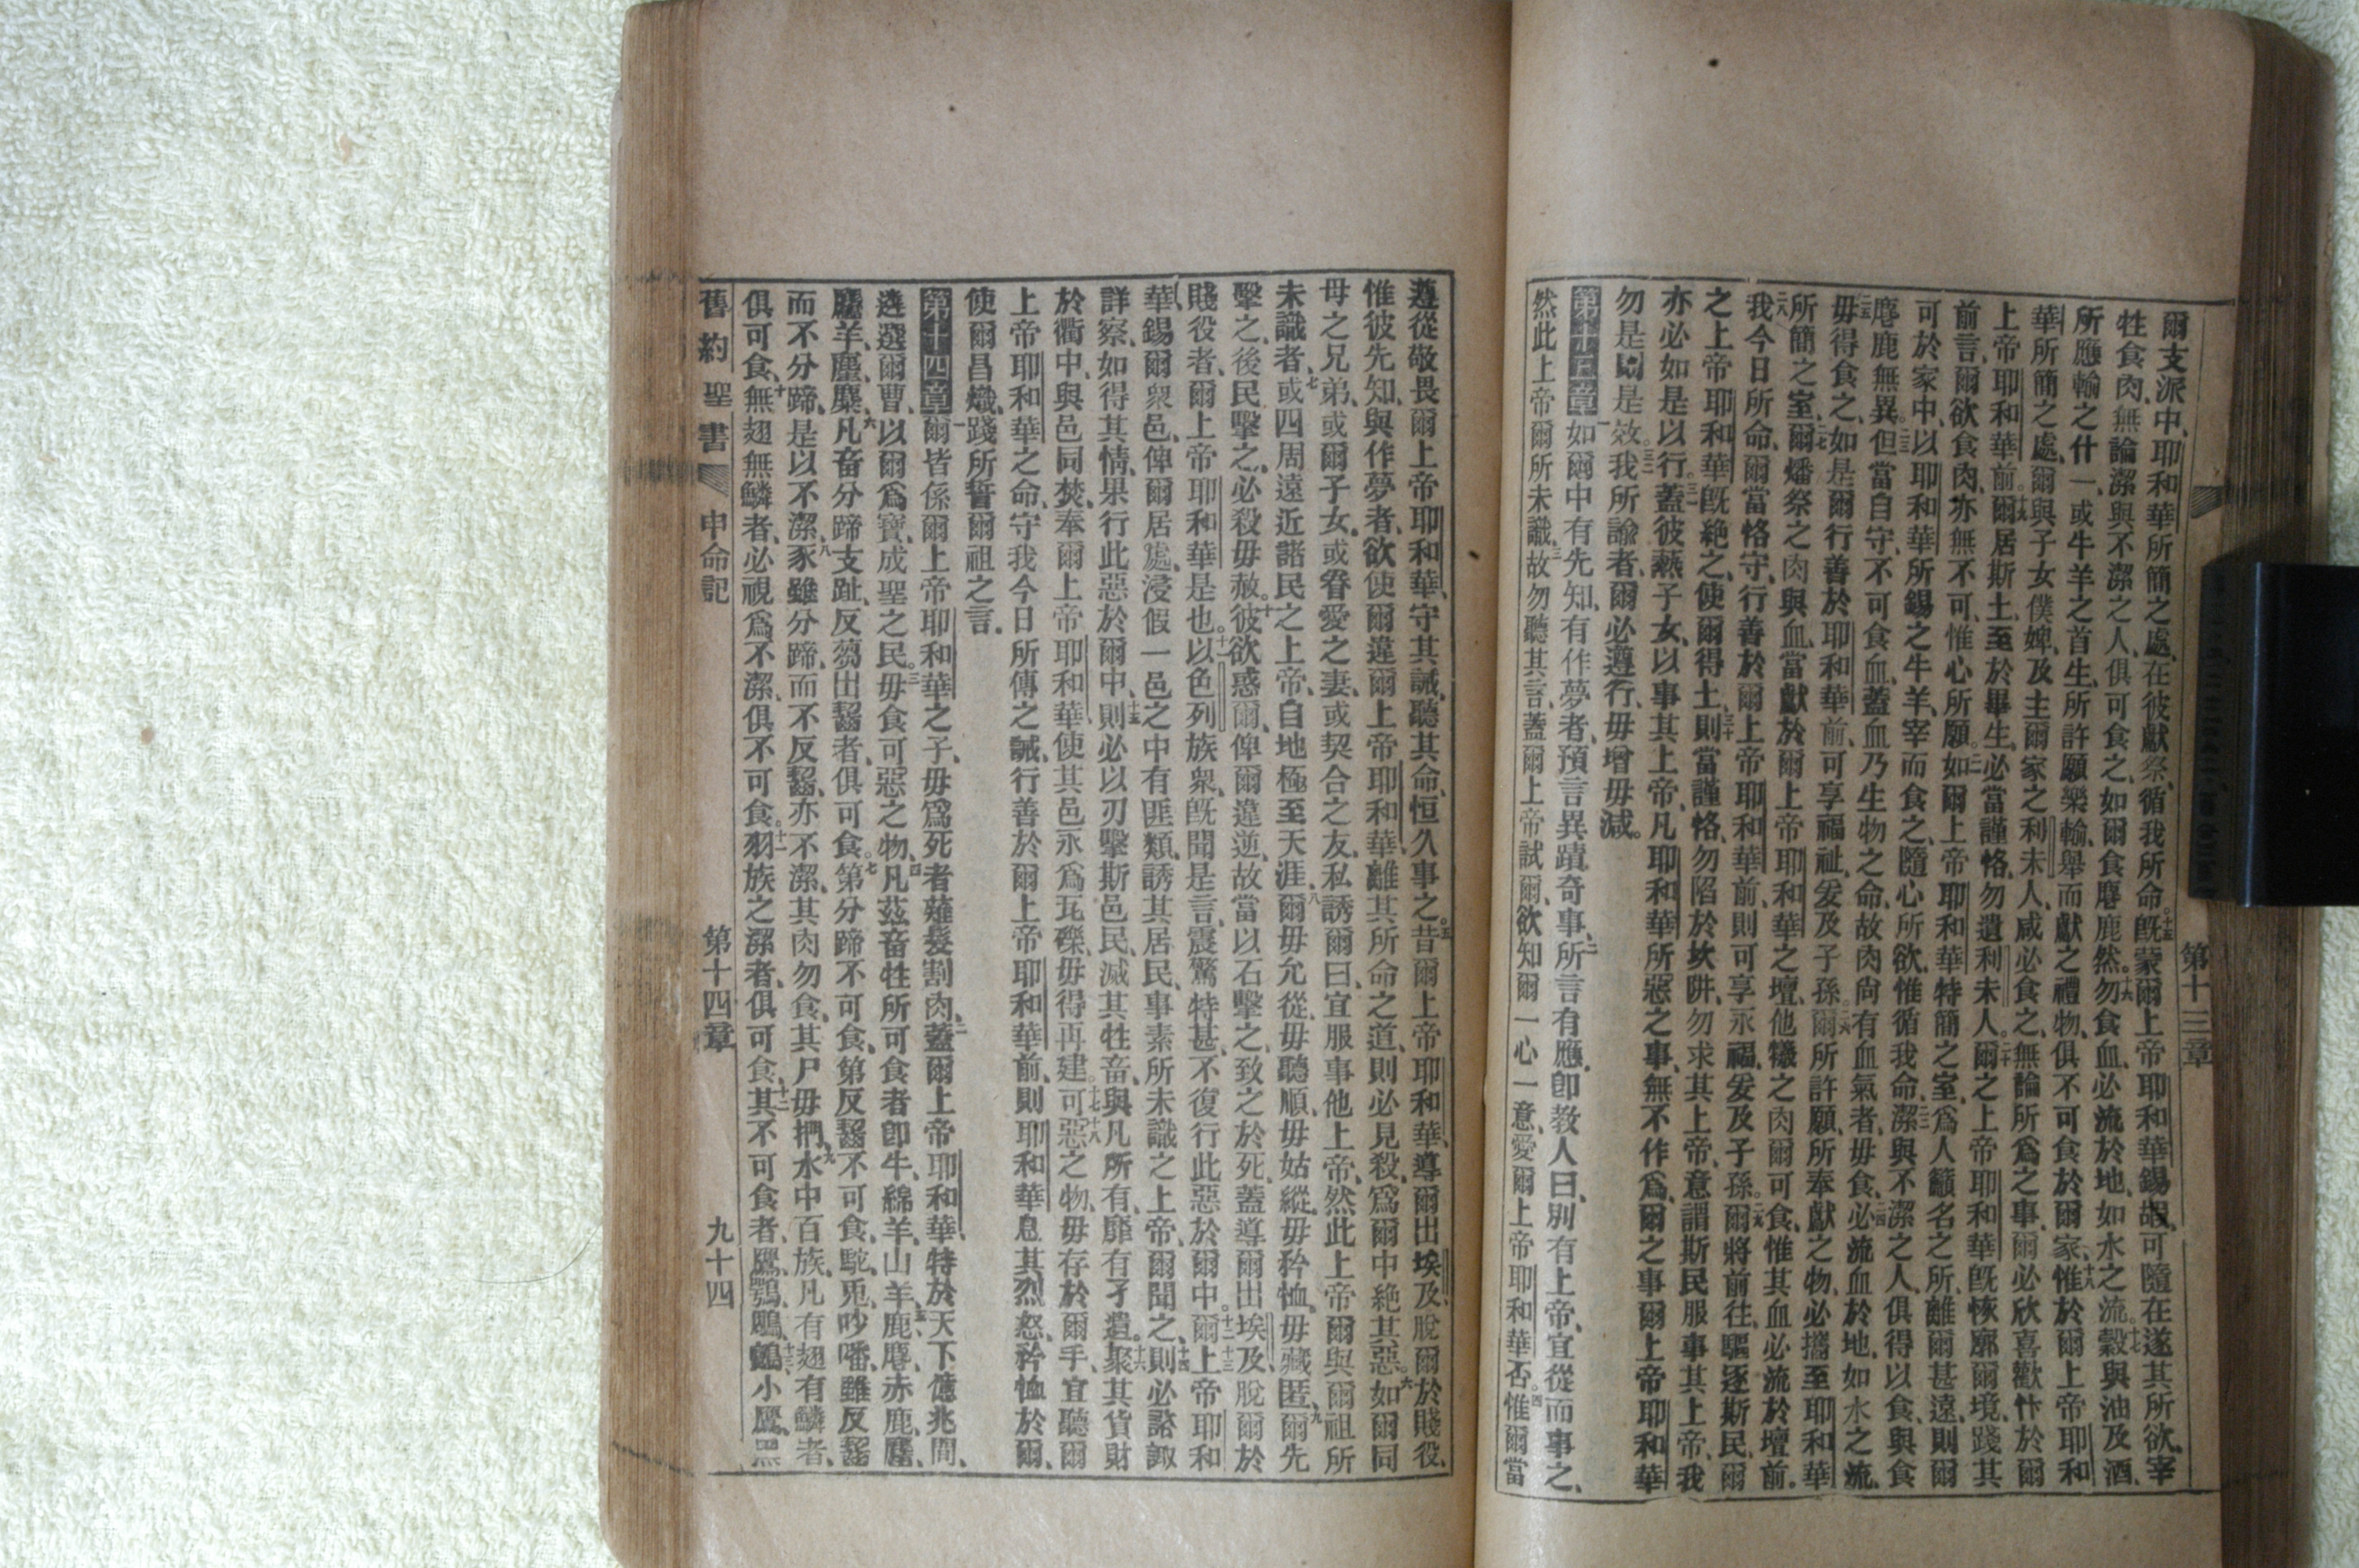 第十三章
爾支派中、耶和華所簡之處、在彼獻祭、循我所命。十五既蒙爾上帝耶和華錫嘏、可隨在遂其所欲、宰
牲食肉、無論潔與不潔之人、俱可食之、如爾食麀鹿然。十六勿食血、必流於地、如水之流。十七穀與油及酒、
所應輸之什一、或牛羊之首生、所許願樂輸、舉而獻之禮物、俱不可食於爾家、十八惟於爾上帝耶和
華所簡之處、爾與子女僕婢、及主爾家之利未人、咸必食之、無論所爲之事、爾必欣喜歡忭於爾
上帝耶和華前。十九爾居斯土、至於畢生、必當謹恪、勿遺利未人。二十爾之上帝耶和華既恢廓爾境、踐其
前言、爾欲食肉、亦無不可、惟心所願。二一如爾上帝耶和華特簡之室、爲人籲名之所、離爾甚遠、則爾
可於家中、以耶和華所錫之牛羊、宰而食之、隨心所欲、惟循我命、二二潔與不潔之人、俱得以食、與食
麀鹿無異。二三但當自守、不可食血、蓋血乃生物之命、故肉尚有血氣者、毋食、二四必流血於地、如水之流、
二五毋得食之、如是爾行善於耶和華前、可享福祉、爰及子孫。二六爾所許願、所奉獻之物、必攜至耶和華
所簡之室、二七爾燔祭之肉與血、當獻於爾上帝耶和華之壇、他犧之肉爾可食、惟其血必流於壇前。
二八我今日所命、爾當恪守、行善於爾上帝耶和華前、則可享永福、爰及子孫。二九爾將前往、驅逐斯民、爾
之上帝耶和華既絕之、使爾得土、三十則當謹恪、勿陷於坎阱、勿求其上帝、意謂斯民服事其上帝、我
亦必如是以行。三一蓋彼爇子女、以事其上帝、凡耶和華所惡之事、無不作爲、爾之事爾上帝耶和華
勿是是效。三二我所諭者、爾必遵行、毋增毋減。
第十三章一如爾中有先知、有作夢者、預言異蹟奇事、二所言有應、卽教人曰、別有上帝、宜從而事之、
然此上帝爾所未識、三故勿聽其言、蓋爾上帝試爾、欲知爾一心一意、愛爾上帝耶和華否。四惟爾當
遵從敬畏爾上帝耶和華、守其誡、聽其命、恒久事之。五昔爾上帝耶和華、導爾出埃及、脫爾於賤役、
惟彼先知、與作夢者、欲使爾違爾上帝耶和華、離其所命之道、則必見殺、爲爾中絕其惡。六如爾同
母之兄弟、或爾子女、或眷愛之妻、或契合之友、私誘爾曰、宜服事他上帝、然此上帝爾與爾祖所
未識者、七或四周遠近諸民之上帝、自地極至天涯、八爾毋允從、毋聽順、毋姑縱、毋矜恤、毋藏匿、九爾先
擊之、後民擊之、必殺毋赦。十彼欲惑爾、俾爾違逆、故當以石擊之、致之於死、蓋導爾出埃及、脫爾於
賤役者、爾上帝耶和華是也。十一以色列族衆、既聞是言、震驚特甚、不復行此惡於爾中。十二十三爾上帝耶和
華、錫爾衆邑、俾爾居處、浸假一邑之中、有匪類、誘其居民、事素所未識之上帝、爾聞之、十四則必諮諏
詳察、如得其情、果行此惡於爾中、十五則必以刃擊斯邑民、滅其牲畜、與凡所有、靡有孑遺。十六聚其貨財
於衢中、與邑同焚、奉爾上帝耶和華、使其邑永爲瓦礫、毋得再建。十七十八可惡之物、毋存於爾手、宜聽爾
上帝耶和華之命、守我今日所傳之誡、行善於爾上帝耶和華前、則耶和華息其烈怒、矜恤於爾、
使爾昌熾、踐所誓爾祖之言。
第十四章一爾皆係爾上帝耶和華之子、毋爲死者薙髮割肉、二蓋爾上帝耶和華、特於天下億兆間、
遴選爾曹、以爾爲寶、成聖之民。三毋食可惡之物、四凡茲畜牲所可食者卽牛、綿羊、山羊、五鹿、麀、赤鹿、
羊、麈、麋、六凡畜分蹄支趾、反芻出齝者、俱可食。七第分蹄不可食、第反齝不可食、駝、兎、吵噃、雖反齝
而不分蹄、是以不潔、八豕雖分蹄、而不反齝、亦不潔、其肉勿食、其尸毋捫、九水中百族、凡有翅有鱗者、
俱可食、十無翅無鱗者、必視爲不潔、俱不可食。十一羽族之潔者、俱可食、十二其不可食者、鷹、鶚、鵰、鷂、十三小鷹、黑
舊約聖書 申命記 第十四章 九十四